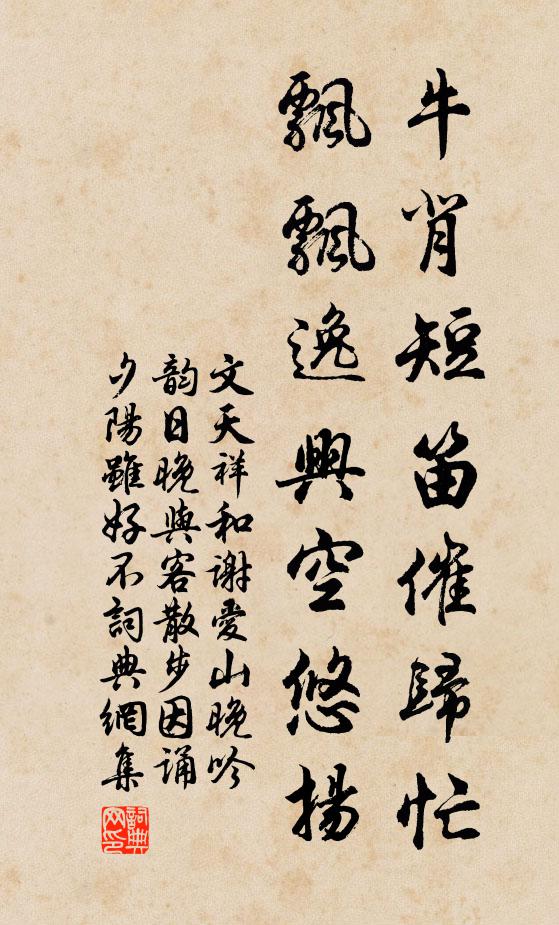 牛背短笛催歸忙
飄飄逸興空悠揚
文天祥和謝愛山晚吟
韵日晚與客散步因誦
夕陽雖好不詞典網集
詞典网印